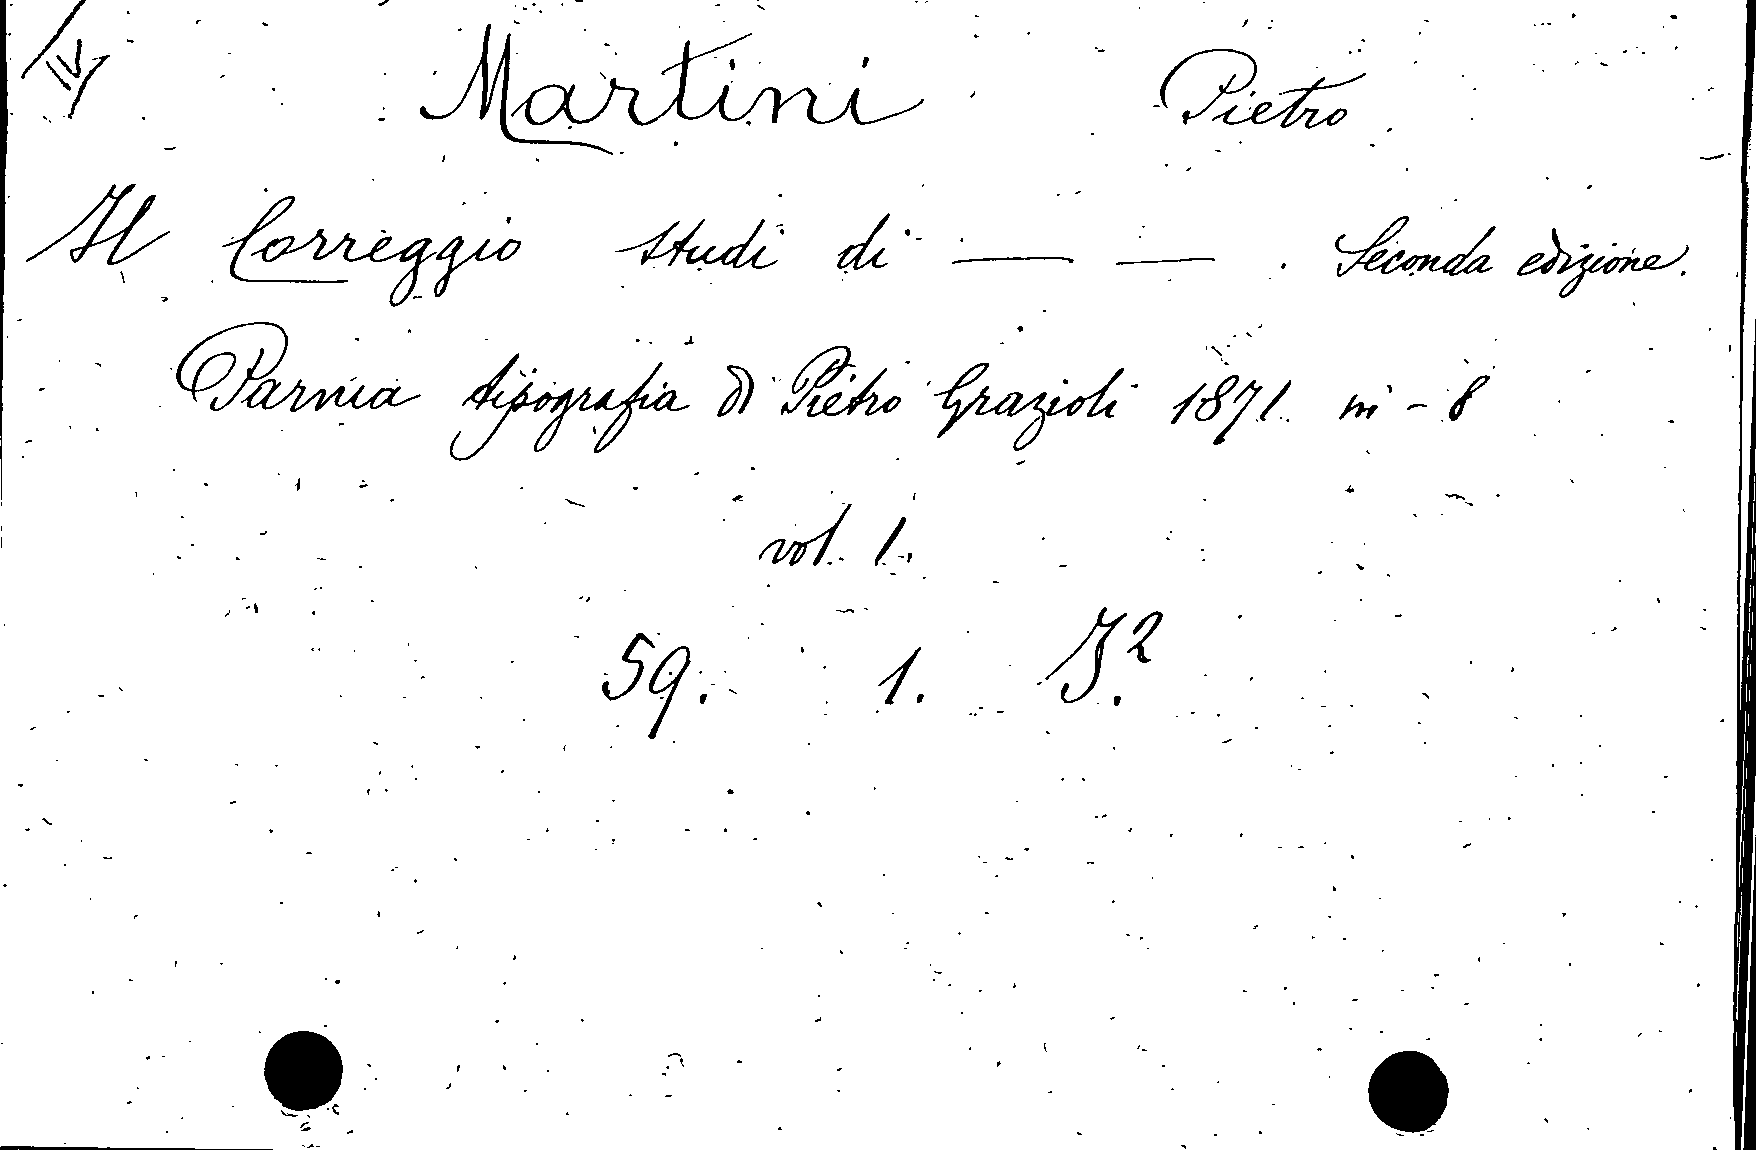 IV
Martini Pietro
Il Correggio studi di — — . Seconda edizione.
Parma tipografia di Pietro Grazioli 1871 in - 8
vol. 1.
59. 1. I.²